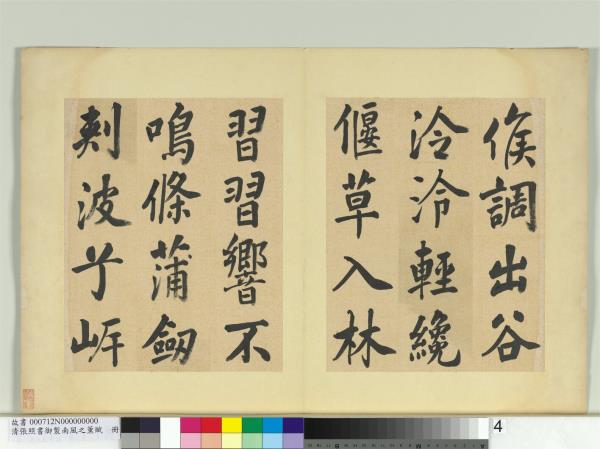 候調出谷
泠泠輕纔
偃草入林
習習響不
鳴條蒲劒
刺波兮岸
故書 000712N000000000
清張照書御製南風之薰賦 冊
4